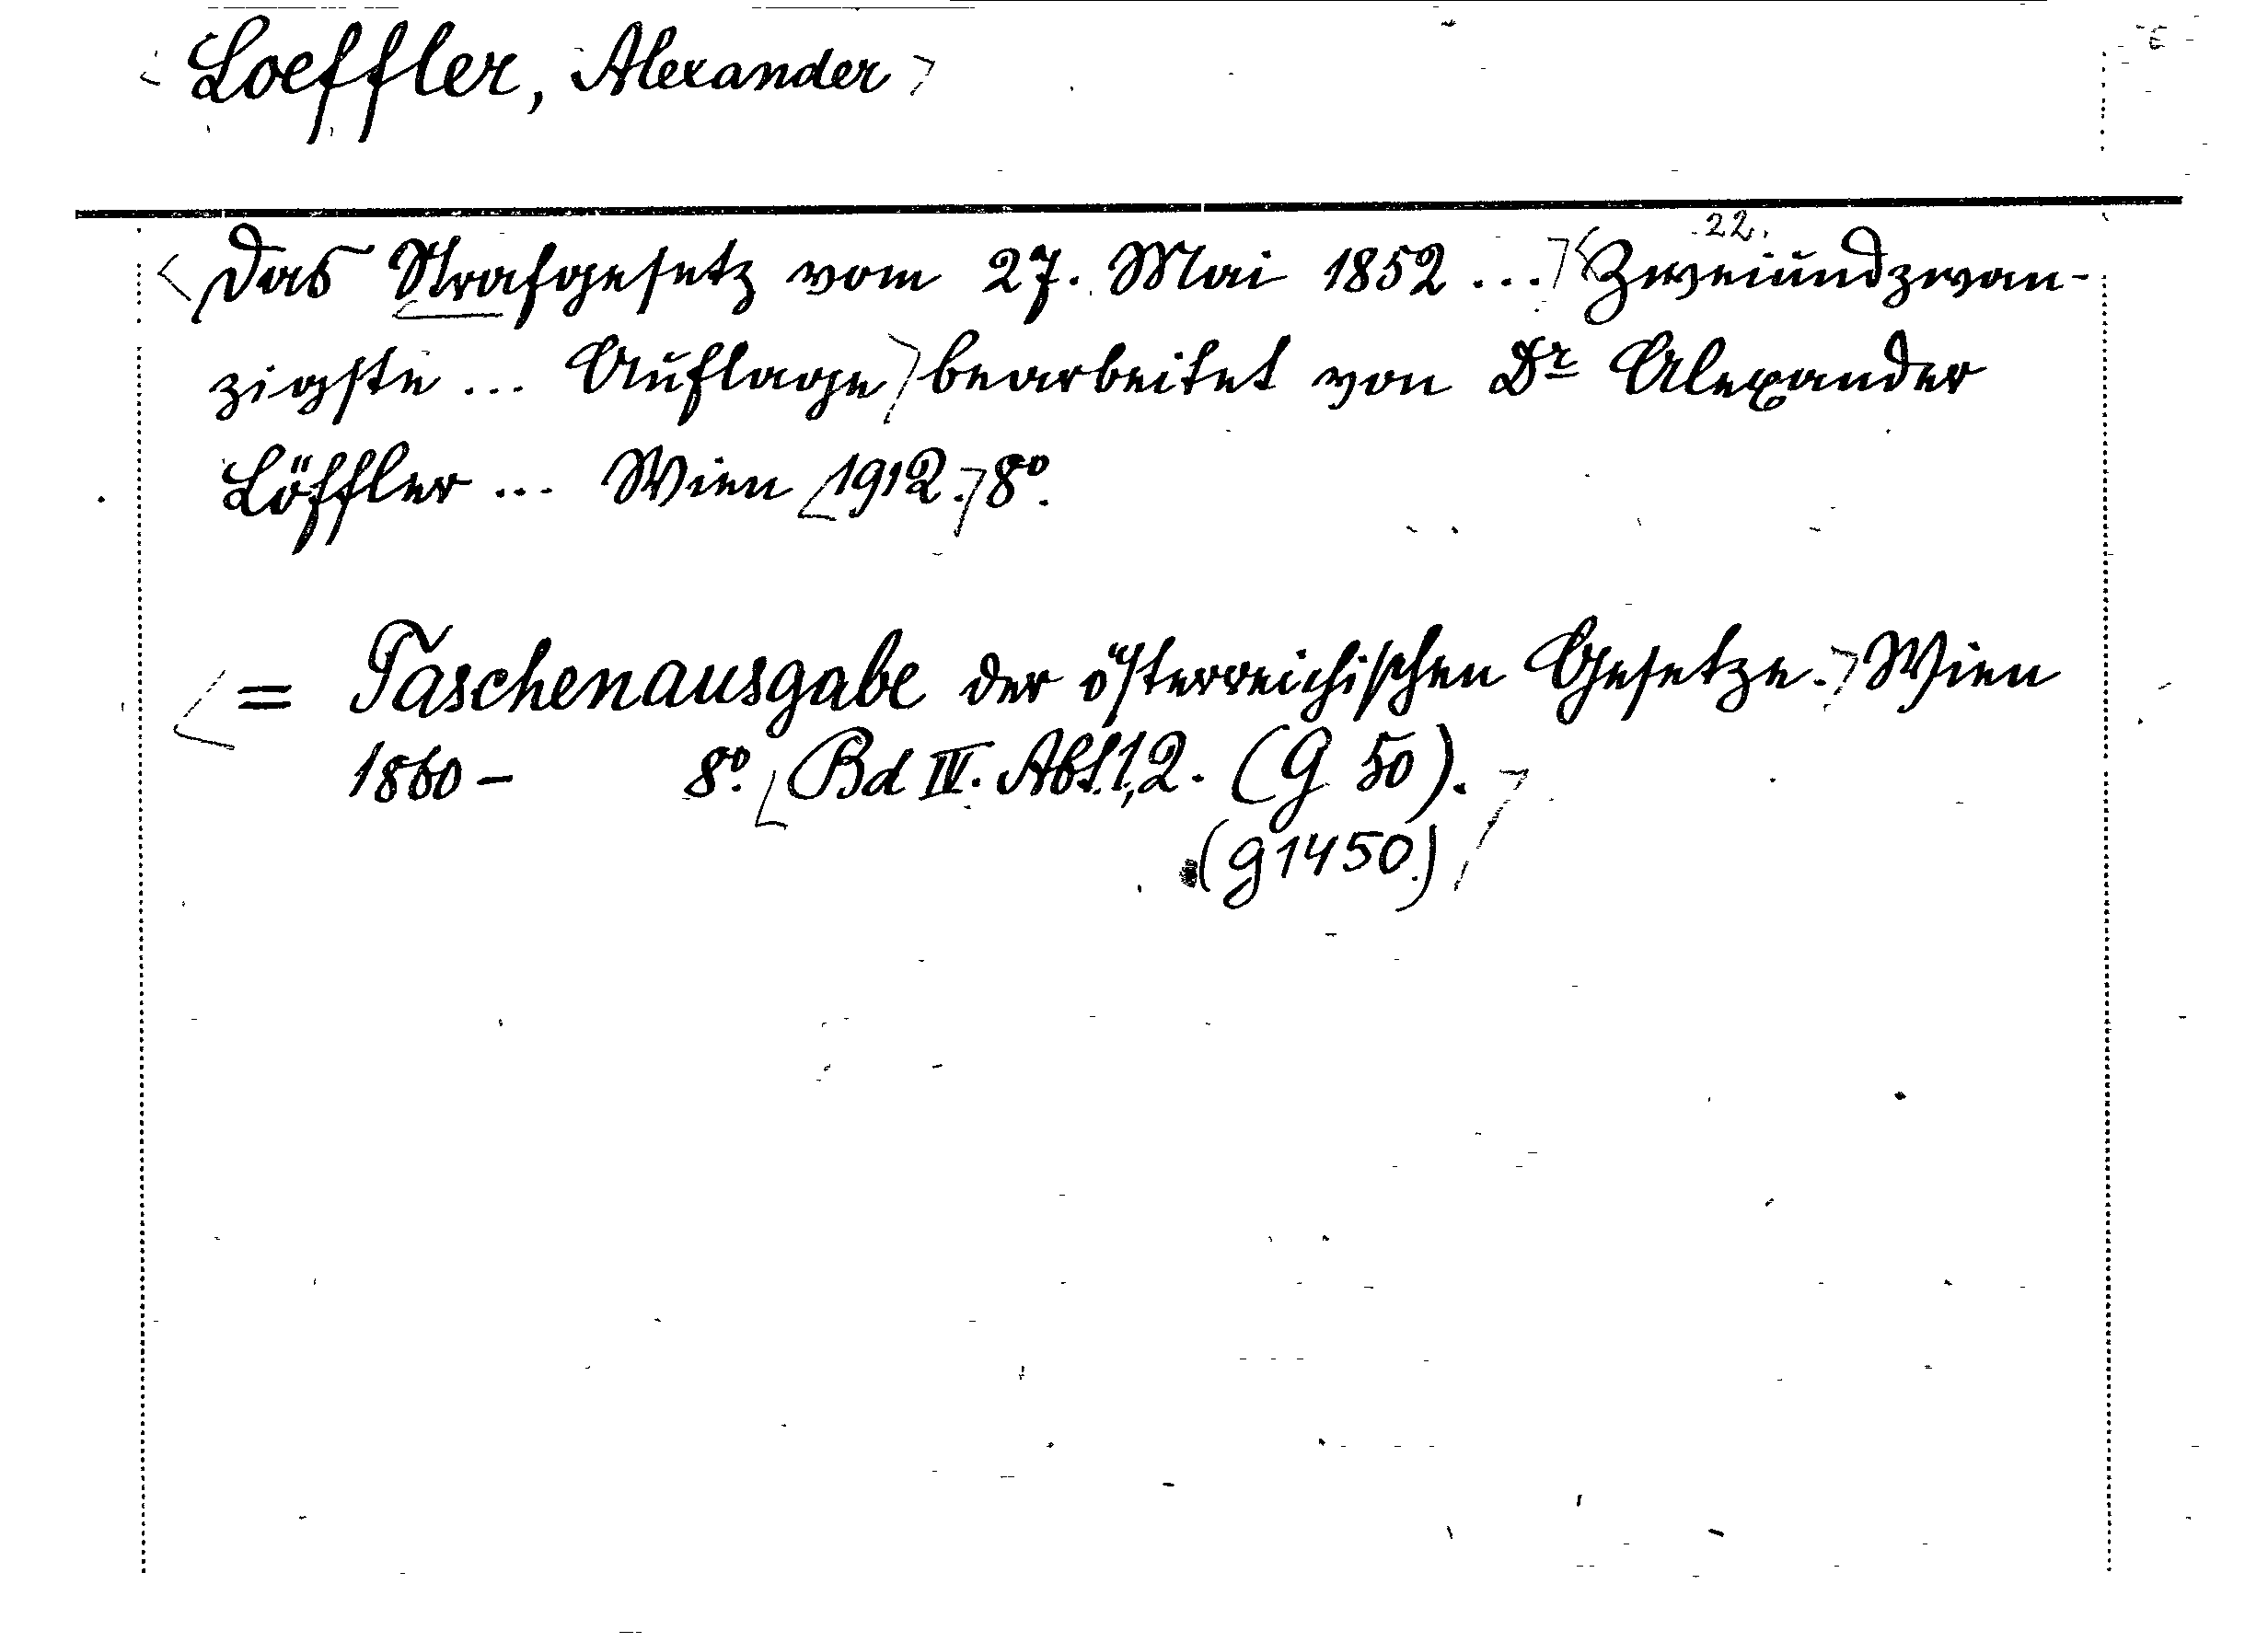 Loeffler, Alexander
22.
Das Strafgesetz vom 27. Mai 1852 ... Zweiundzwan-
zigste ... Auflage bearbeitet von Dr Alexander
Löffler ... Wien 1912. 8°.
= Taschenausgabe der österreichischen Gesetze. Wien
1860 - 8°. Bd IV. Abt. 1,2. (G 50).
(g 1450.)